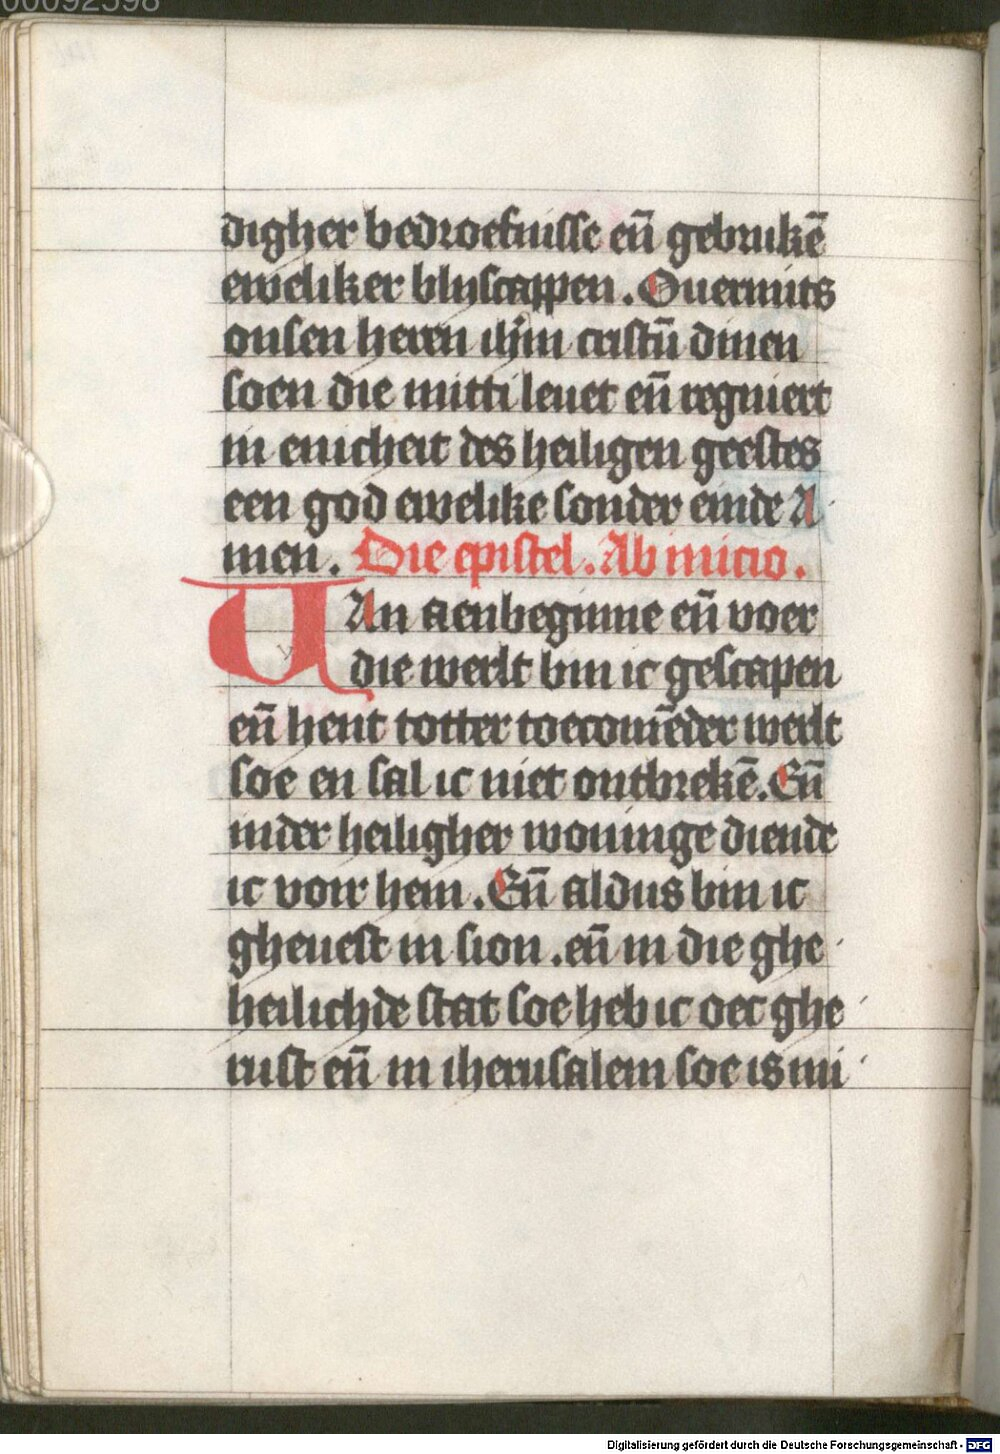 00092598
digher bedroefnisse en̄ gebrukē
eweliker blyscappen. Ouermits
onsen heren ih̄m cristū dinen
soen die mitti leuet en̄ regniert
in enicheit des heiligen geestes
een god ewelike sonder einde A
men. Die epistel. Ab inicio.
VAn aenbeginne en̄ voer
die werlt bin ic gescapen
en̄ hent totter toecomēder werlt
soe en sal ic niet ontbrekē. En̄
inder heiligher woninge diende
ic voir hem. En̄ aldus bin ic
gheuest in sion. en̄ in die ghe
heilichde stat soe heb ic oec ghe
rust en̄ in iherusalem soe is mi
Digitalisierung gefördert durch die Deutsche Forschungsgemeinschaft - DFG